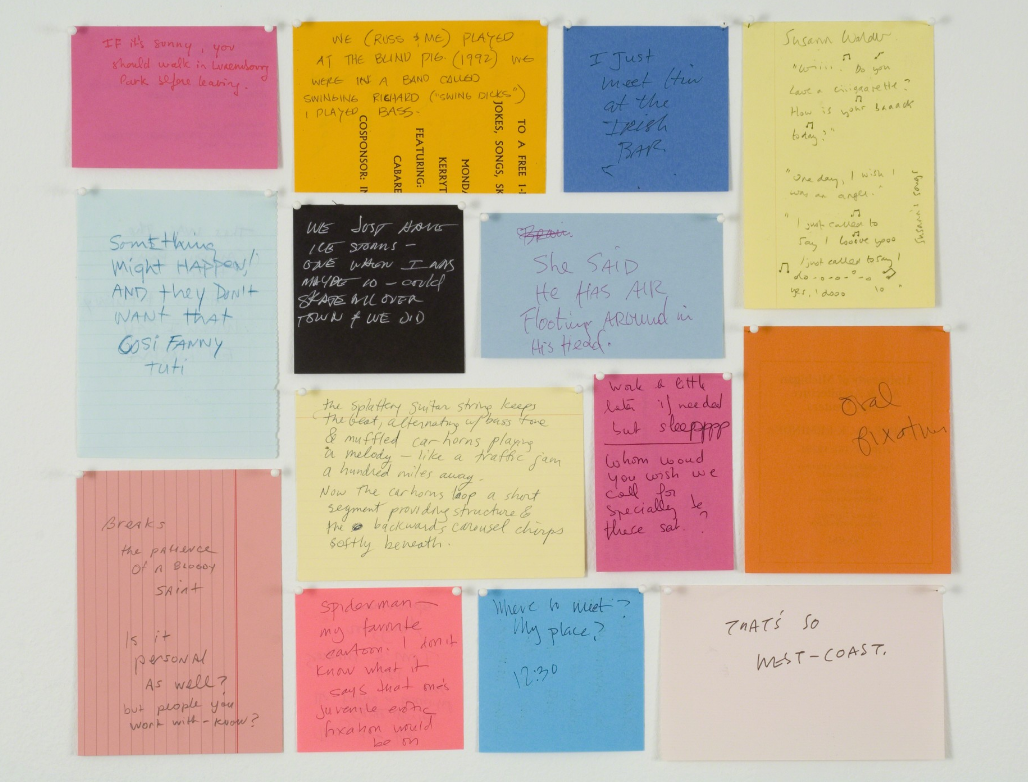 IF it's sunny, you
should walk in Luxembourg
Park before leaving.
WE (RUSS & ME) PLAYED
AT THE BLIND PIG (1992) WE
WERE IN A BAND CALLED
SWINGING RICHARD ("SWING DICKS")
I PLAYED BASS.
TO A FREE 1-
JOKES, SONGS, SK
MONDA
KERRYT
FEATURING:
CABARE
COSPONSOR: IN
I Just
meet him
at the
Irish
BAR
Susann
Do you
have a cigarette?
How is your
today?"
"One day, I wish I
was an angel."
"I just called to
Say I looove you
I just called to say I
Something
Might HAPPEN!
AND they DON'T
WANT that
COSI FANNY
Tuti
WE JUST HAVE
ICE STORMS –
ONE WHEN I WAS
MAYBE 10 – could
SKATE ALL OVER
TOWN & WE DID
She SAID
He HAS AIR
Floating AROUND in
His Head.
the splattery guitar string keeps
the beat, alternating w/ bass tone
& muffled car-horns playing
a melody – like a traffic jam
a hundred miles away.
Now the car horns loop a short
segment providing structure &
the backwards carousel chirps
softly beneath.
work a little
late if needed
but sleepppp
Whom would
you wish we
call for
specially to
these sat.?
oral
fixation
Breaks
the patience
Of a Bloody
SAINT
Is it
personal
As well?
but people you
work with – know?
Spiderman –
my favorite
cartoon. I don't
know what it
says that one's
juvenile erotic
fixation would
be on
Where to meet?
My place?
12:30
THAT'S SO
WEST-COAST.